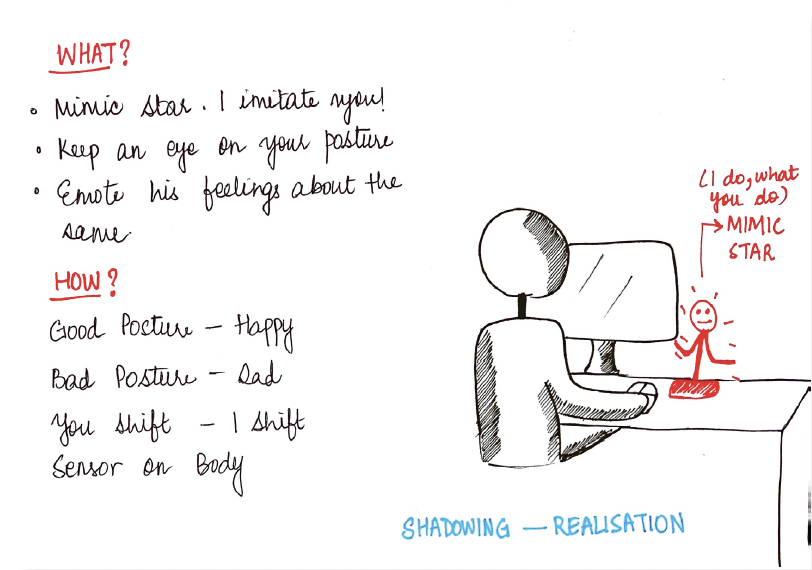 WHAT?
• Mimic Star. I imitate you!
• Keep an eye on your posture
• Emote his feelings about the
same.
HOW?
Good Posture – Happy
Bad Posture – Sad
You Shift – I Shift
Sensor on Body
(I do, what
you do)
MIMIC
STAR
SHADOWING – REALISATION